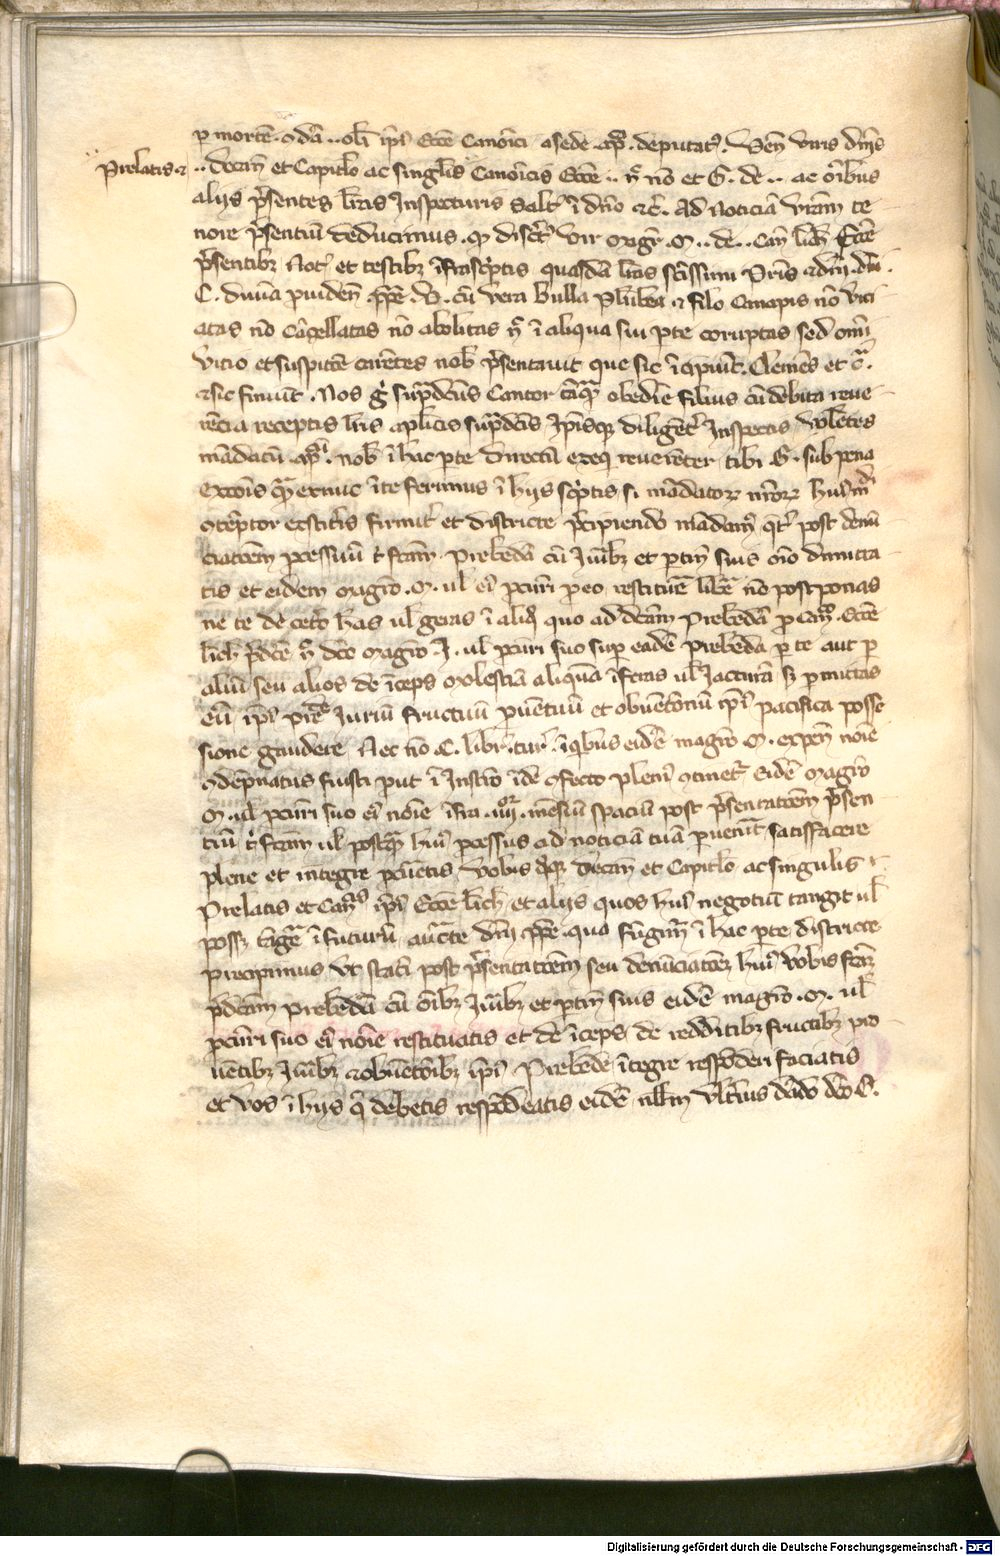 p mortē ꝯdā .. olī ip̄i Ecc̄e Canōici a sede ap̄. deputat᷒. Ven̄ viris dn̄is
Prelatis ⁊
.. decan̄ et Capitl̄o ac singl̄is Canōicis Ecc̄e .. n̄ nō et G. de .. ac ōibus
alijs p̄sentes lr̄as Inspecturis Salt̄ ī dn̄o ⁊c̄. Ad noticiā vrām te
nore p̄sentiū deducimus ꝙ discr̄t᷒ vir magr̄ M .. de .. Can̄ lich̄ Ecc̄e
p̄sentibꝫ not᷒ et testibꝫ īfrasc̄ptis quasdā lr̄as sc̄issimi pr̄is ⁊ dn̄i dn̄i
C. diuīa ꝓuiden̄ pp̄e .V. cū vera bulla plūbea ⁊ filo canapis nō vici
atas nō cācellatas nō abolitas n̄ ī aliqua sui ꝑte coruptas sed omī
vicio et suspic̄ōe carētes nob̄ p̄sentauit que sic īcipiūt. Clemēs et c̄.
⁊ sic finiūt. Nos g̊ sup̄dcūs Cantor tāq̄ obedīe filius cū debita reue
rēcia receptis lr̄is ap̄licis sup̄dcīs Ip̄isqꝫ diligēt̄ Inspectis volētes
mādatū ap̄. nob̄ ī hac ꝑte directū exeq̄ reuerēter tibi G. sub pena
excōis quā exnūc ī te ferimus ī hijs sc̄ptis si mādatoꝝ nr̄oꝝ hui᷒mōi
ꝯtēptor exstitīs firmit̄ et districte p̄cipiendo mādam᷒ qt̄ post denū
ciacōem ꝓcessuū t̄ fcām prebēdā cū Iuribꝫ et ꝑtin̄ suis oīo dimitta
tis et eidem magrō .M. ul̄ eī ꝓcurī ꝓ eo restituē libē nō postponas
ne te de cet̄o has ul̄ geras ī aliq̊ quo ad dcām prebēdā ꝓ can̄. Ecc̄e
lich̄ p̄dc̄e n̄ dcō magrō .J. ul̄ ꝓcurī suo sup̄ eadē prebēda ꝑ te aut ꝑ
aliū seu alios de īceps molestiā aliquā īferas ul̄ Iacturā sꝫ ꝑmittas
eū ip̄i Iuriū fructuū ꝓuētuū et obuētōnū ip̄i pacifica posse
sione gaudere Nec nō C. libr̄. tur̄. ī qbus eidē magrō M. expen̄ noīe
ꝯdēpnatus fuisti put ī Instrō īde ꝯfecto pleni᷒ ꝯtinet᷒ eidē magrō
M. ul̄ ꝓcurī suo eī noīe īfra .iiij. mēsiū spaciū post p̄sentatcōem p̄sen
tiū t̄ fcām ul̄ postq̄ hui᷒ ꝓcessus ad noticiā tuā ꝑuenīt satisfacere
plene et integre ꝓcuretis vobis qꝫ decan̄ et Capitl̄o ac singulis
Prelatis et Can̄ ip̄i Ecc̄e lich̄ et alijs quos hui᷒ negotiū tangit ul̄
possꝫ tāge ī futurū auc̄te dn̄i pp̄e qua fūgim᷒ ī hac ꝑte districte
precipimus vt stati post p̄sentatcōem seu denūciatcōem hui᷒ vobis fcām
p̄dcām prebēdā cū oībꝫ Iuribꝫ et ꝑtin̄ suis eidē magrō .M. ul̄
ꝓcurī suo eī noīe restituatis et de īceps de redditibꝫ fructibꝫ pro
uētibꝫ Iuribꝫ ⁊ obuētōibꝫ ip̄i prebēde ītegre respōderi faciatis
et vos ī hijs q̄ debetis respōdeatis eidē nll̄m vlt̄ius dādo dcō C.
Digitalisierung gefördert durch die Deutsche Forschungsgemeinschaft - DFG